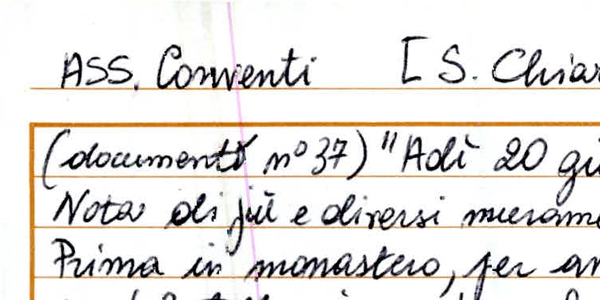 ASS. Conventi [ S. Chiar
(documento n° 37) "Adì 20 giu
Nota di più e diversi murame
Prima in monastero, per an